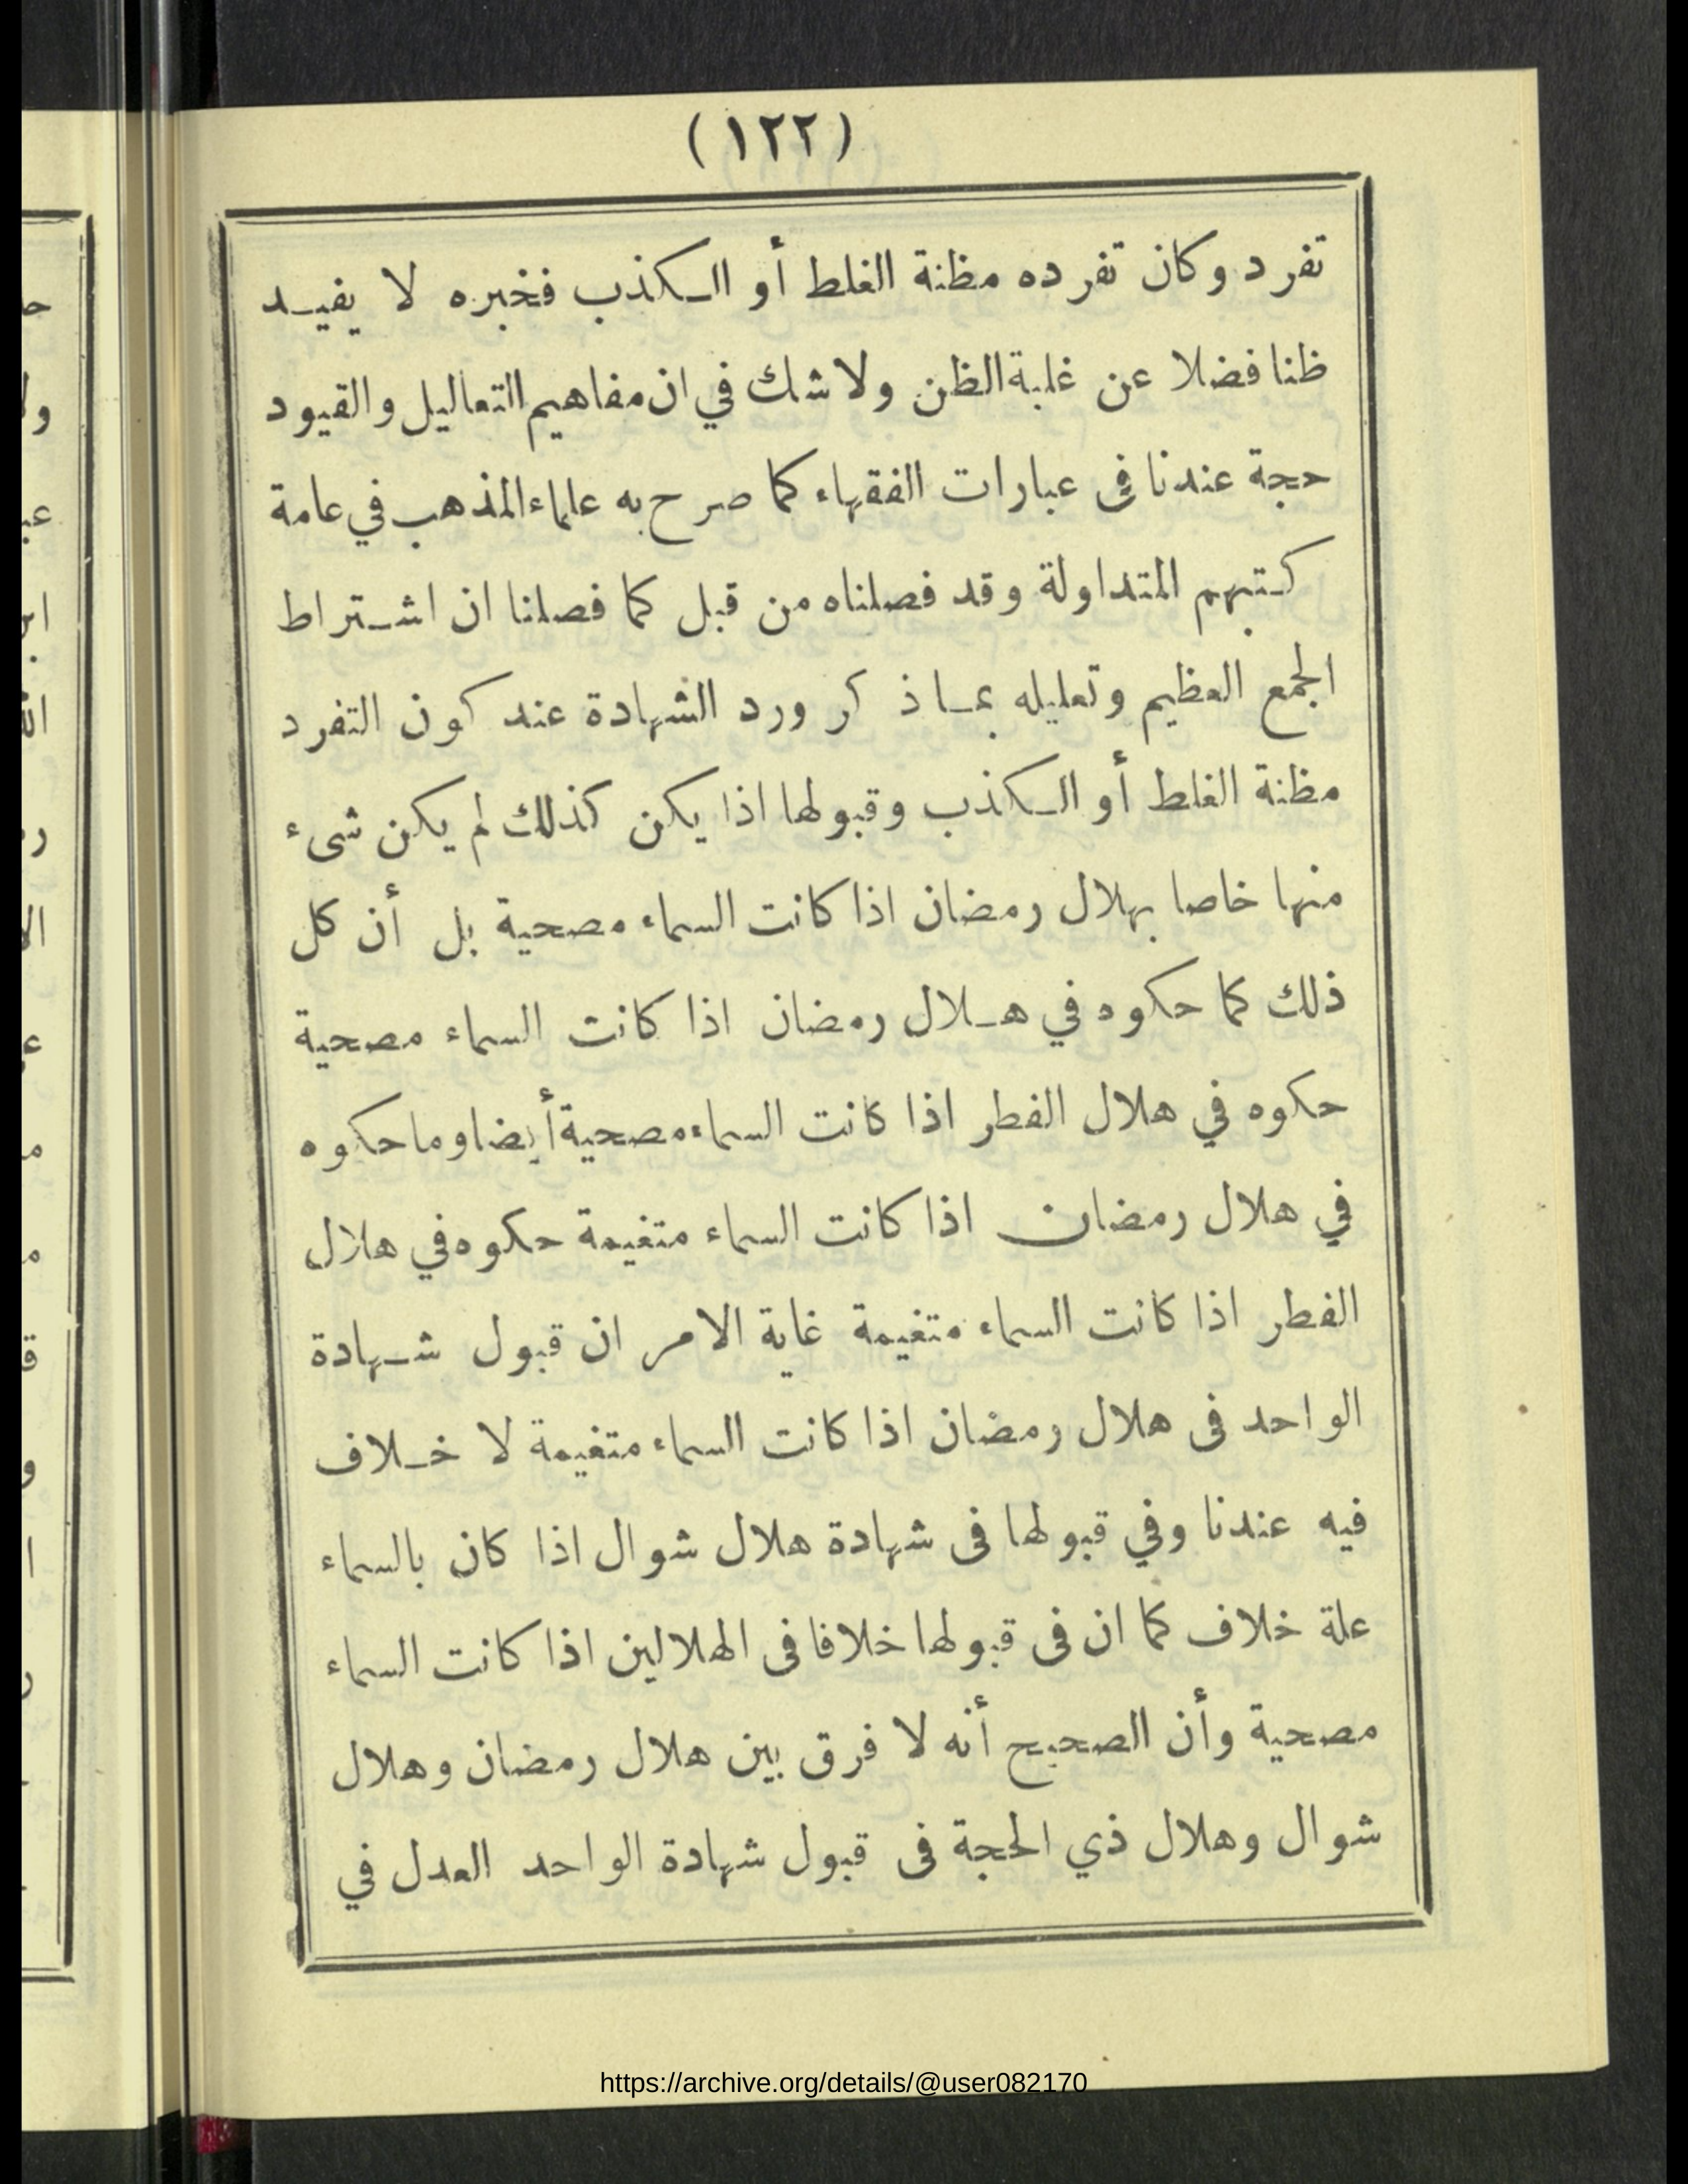 (١٢٢)
تفرد وكان تفرده مظنة الغلط أو الكذب فخبره لا يفيد
ظنا فضلا عن غلبة الظن ولا شك في ان مفاهيم التعاليل والقيود
حجة عندنا في عبارات الفقهاء كما صرح به علماء المذهب في عامة
كتبهم المتداولة وقد فصلناه من قبل كما فصلنا ان اشتراط
الجمع العظيم وتعليله بما ذكر ورد الشهادة عند كون التفرد
مظنة الغلط أو الكذب وقبولها اذا يكن كذلك لم يكن شىء
منها خاصا بهلال رمضان اذا كانت السماء مصحية بل أن كل
ذلك كما حكوه في هلال رمضان اذا كانت السماء مصحية
حكوه في هلال الفطر اذا كانت السماء مصحية أيضا وما حكوه
في هلال رمضان اذا كانت السماء متغيمة حكوه في هلال
الفطر اذا كانت السماء متغيمة غاية الامر ان قبول شهادة
الواحد فى هلال رمضان اذا كانت السماء متغيمة لا خلاف
فيه عندنا وفي قبولها فى شهادة هلال شوال اذا كان بالسماء
علة خلاف كما ان فى قبولها خلافا فى الهلالين اذا كانت السماء
مصحية وأن الصحيح أنه لا فرق بين هلال رمضان وهلال
شوال وهلال ذي الحجة فى قبول شهادة الواحد العدل في
https://archive.org/details/@user082170